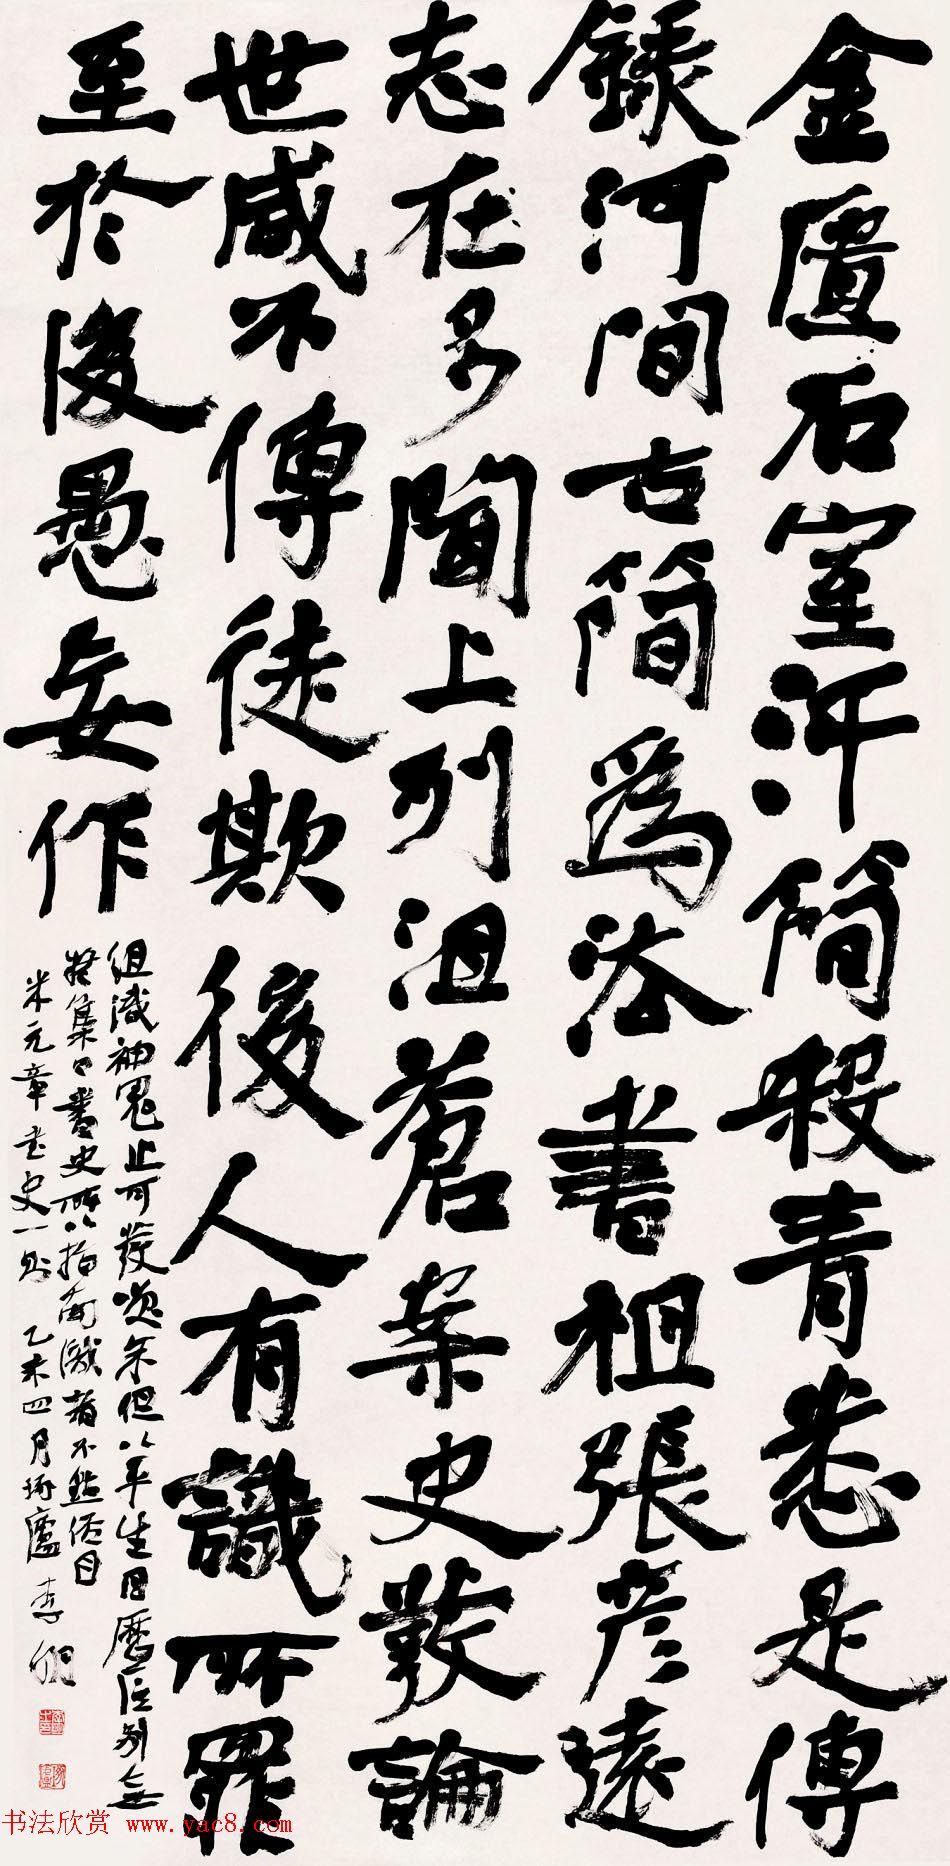 金匱石室汗簡殺青悉是傳
録河間古簡爲法書祖張彦遠
志在多聞上列沮蒼案史發論
世咸不傳徒欺後人有識所罪
至於後愚妄作
組織神鬼止可發笑余但以平生目歷區別無
疑集曰書史所以指南識者不點俗目
米元章書史一則 乙未四月琢廬李明
书法欣赏 www.yac8.com